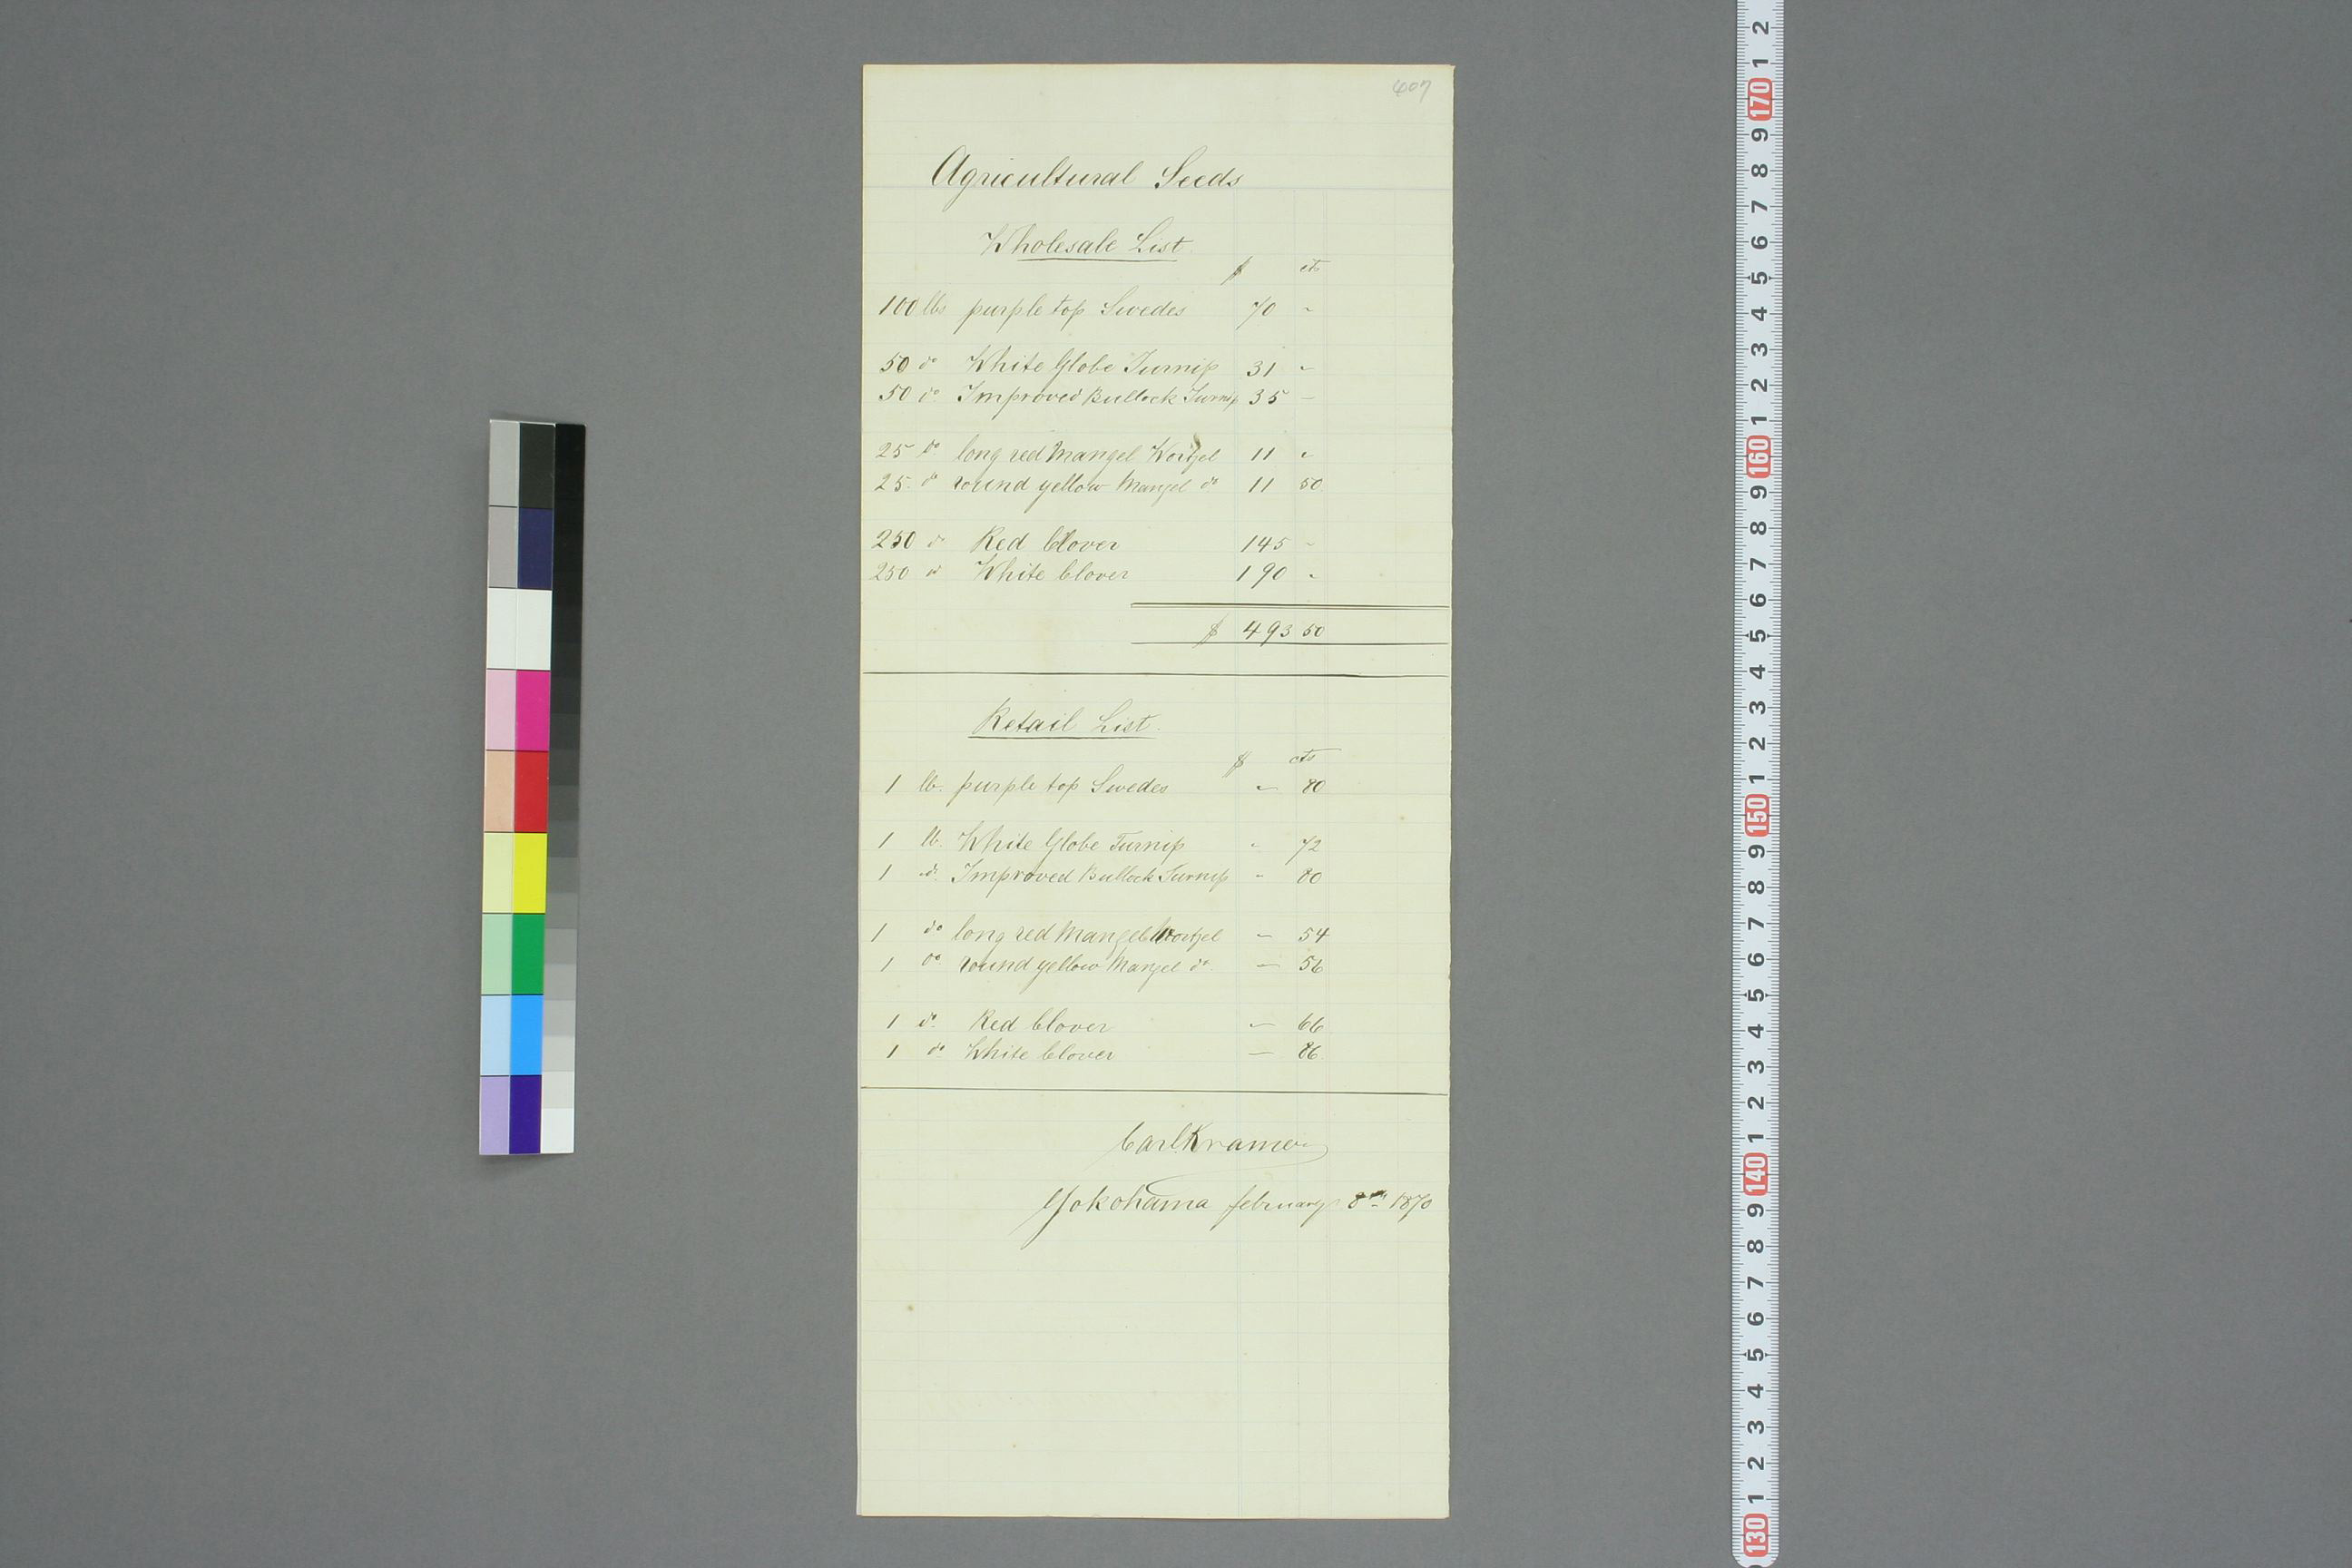 607
Agricultural Seeds
Wholesale List.
$ cts
100 lbs purple top Swedes 70 "
50 do White Globe Turnip 31 "
50 do Improved Bullock Turnip 35 —
25 do long red Mangel Wortzel 11 "
25 do round yellow Mangel do 11 50
250 do Red Clover 145 "
250 do White Clover 190 "
$ 493 50
Retail List.
$ cts
1 lb. purple top Swedes " 80
1 lb. White Globe Turnip " 72
1 do. Improved Bullock Turnip " 80
1 do long red Mangel Wortzel " 54
1 do round yellow Mangel do. — 56
1 do. Red Clover " 66
1 do White Clover — 86
Carl Kramer
Yokohama february 8th 1870
2
1
170
9
8
7
6
5
4
3
2
1
160
9
8
7
6
5
4
3
2
1
150
9
8
7
6
5
4
3
2
1
140
9
8
7
6
5
4
3
2
1
130